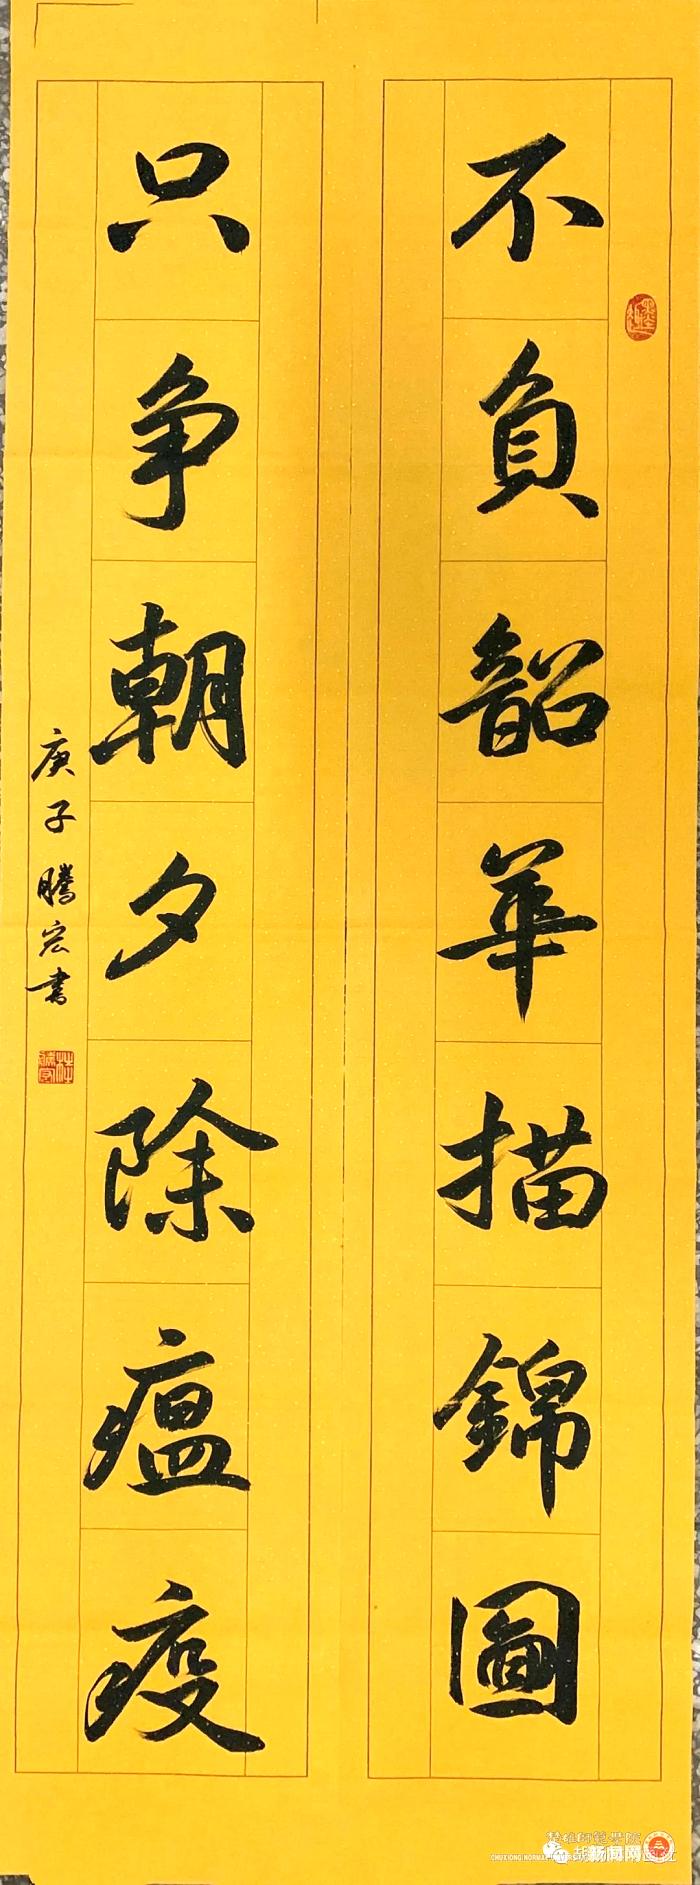 不負韶華描錦圖
只争朝夕除瘟疫
庚子騰宏書
楚雄師範學院
新闻网